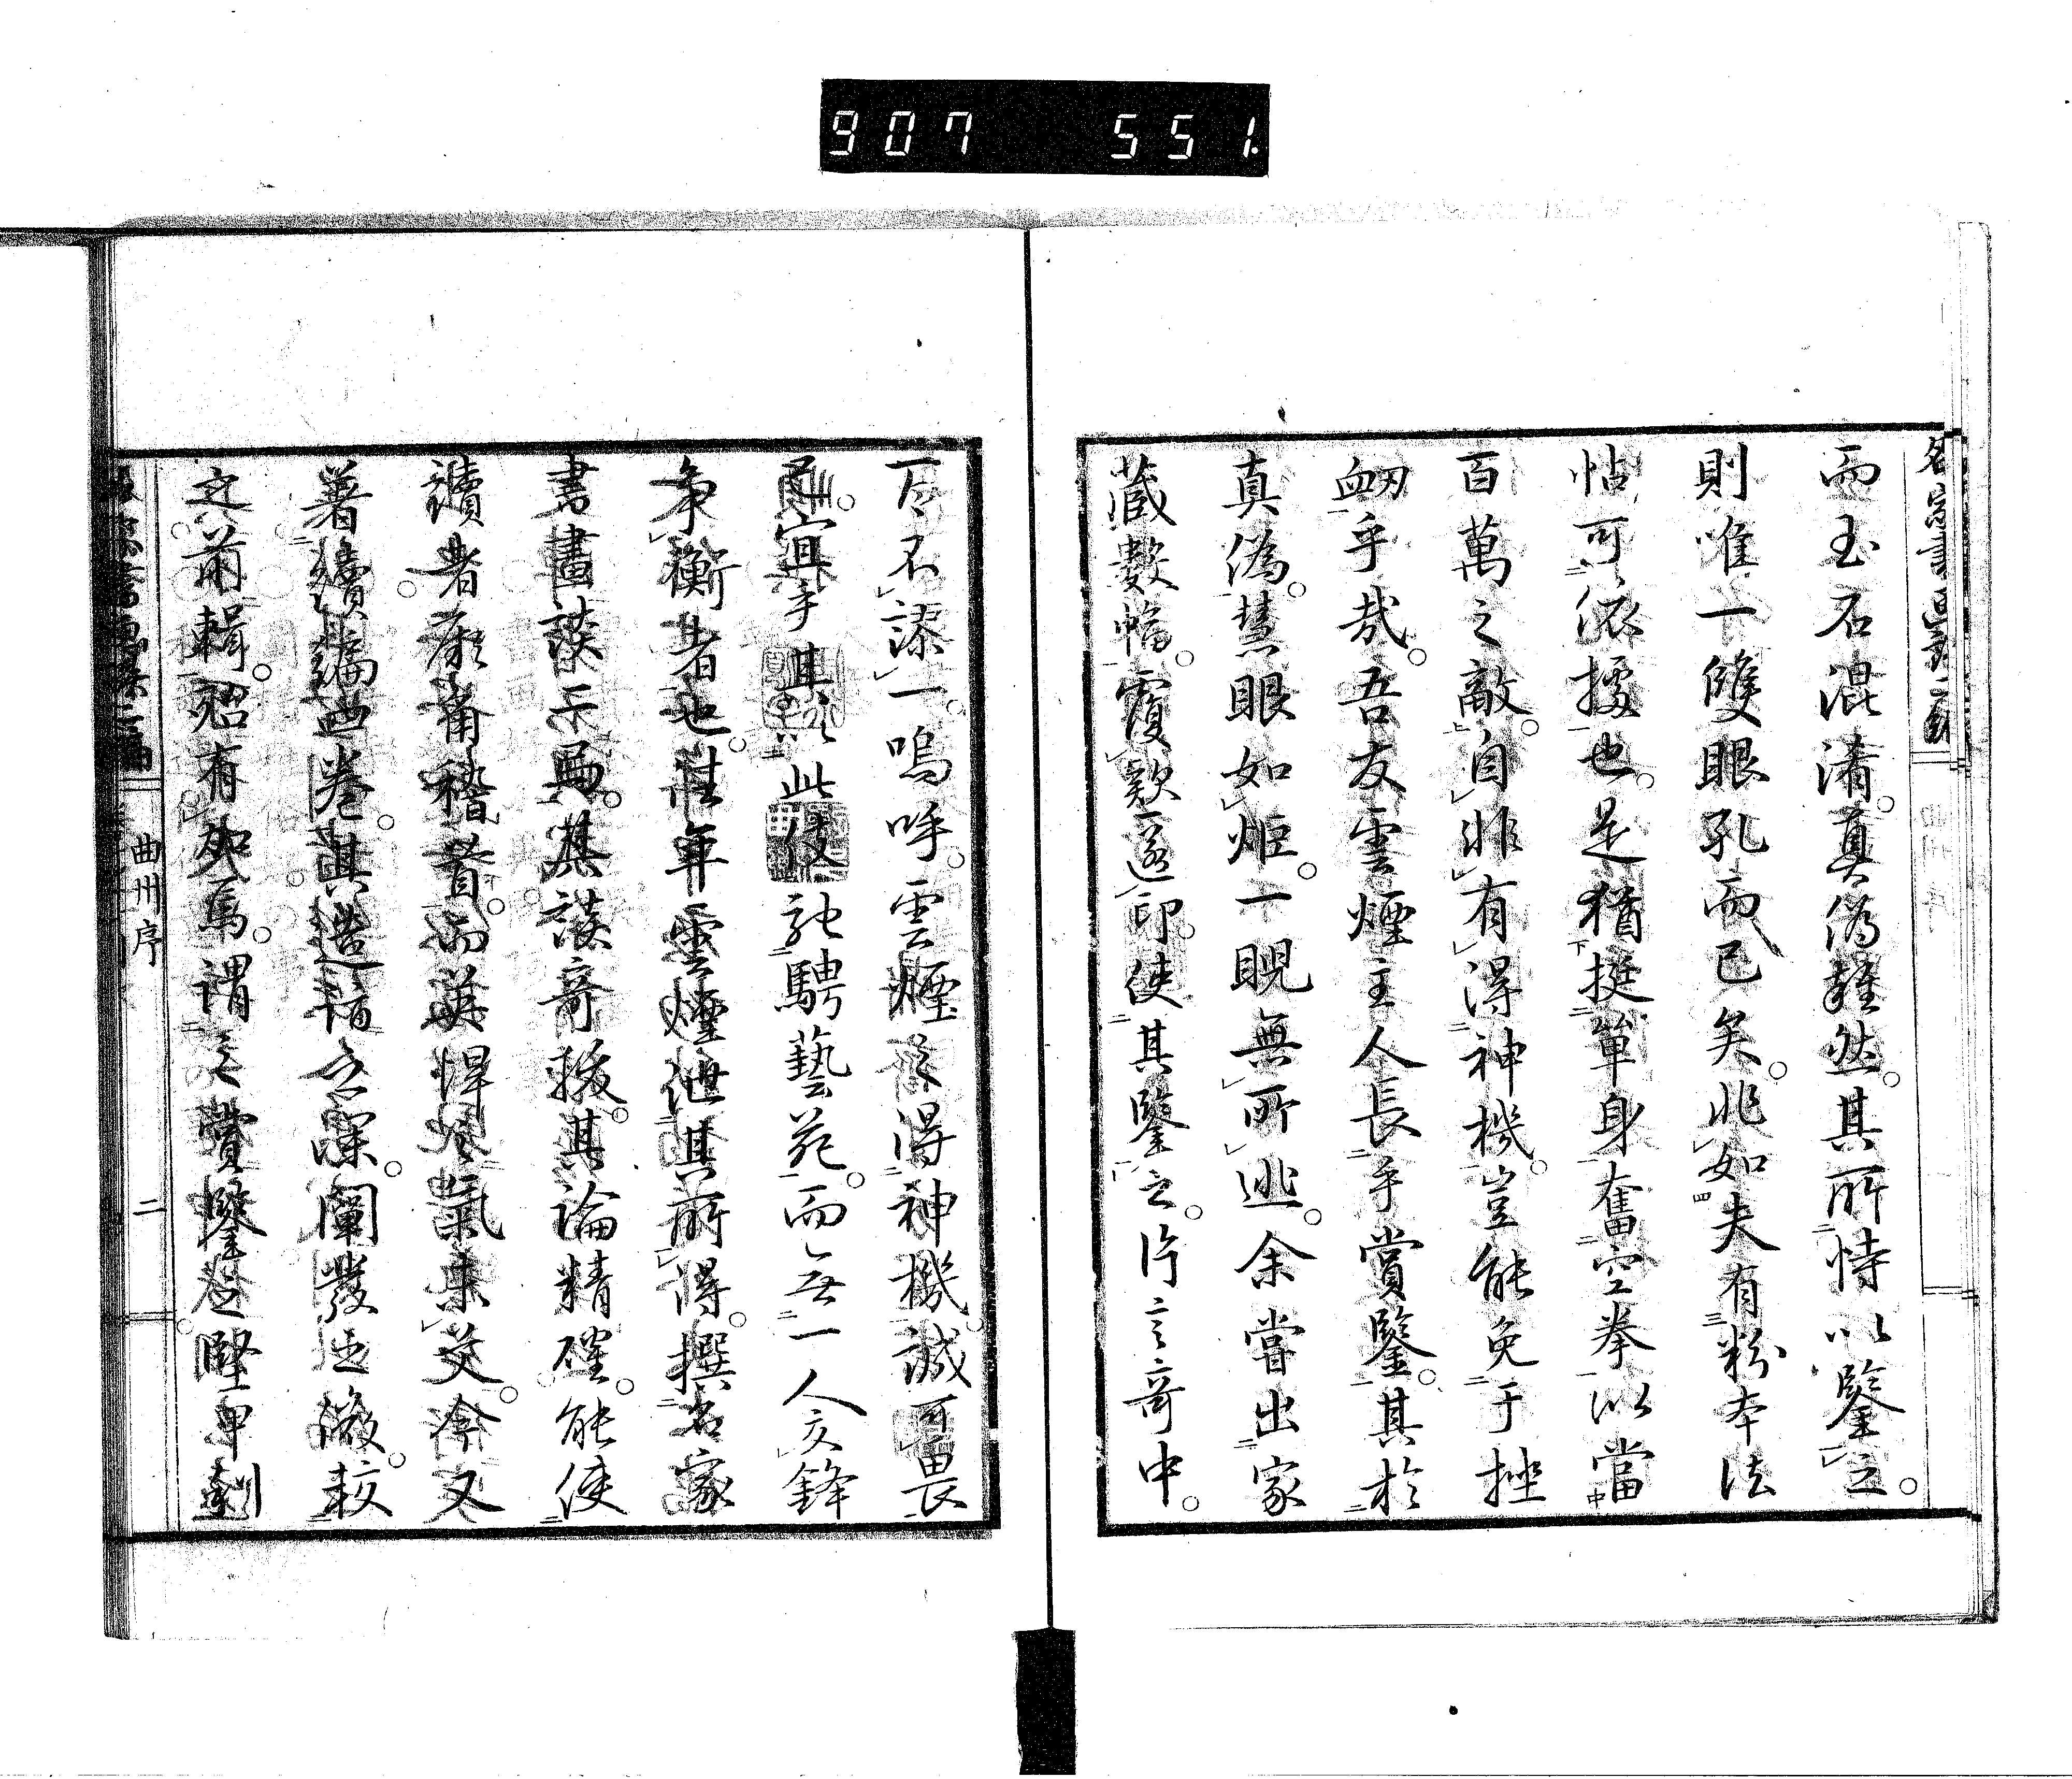 907 551
而玉石混淆。真偽雜然。其所恃以鑒之。
則唯一雙眼孔而已矣。非如夫有粉本法
帖可依據也。是猶挺單身奮空拳以當
百萬之敵。自非有得神機。豈能免于挫
衂乎哉。吾友雲煙主人長乎賞鑒。其於
真偽。慧眼如炬。一睨無所逃。余嘗出家
藏數幅。覆款遮印。使其鑒之。片言奇中。
百不謬一。嗚呼。雲煙之得神機。誠可畏
宜乎其以此技馳騁藝苑。而無一人交鋒
争衡者也。往年雲煙紀其所得。撰名家
書畫談二
其談奇拔。其論精確。能使
讀者
而英悍之氣
今又
著續編四卷。其造詣之深。闡發之微。較
之前輯。
有加焉。謂之賞鑒
曲州序
二